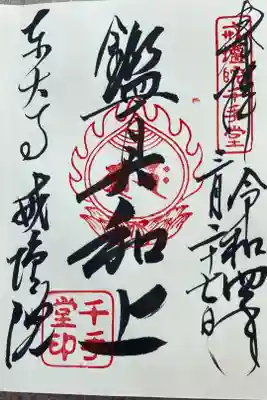 奉拝
戒壇院千手堂
令和四年
月二十七日
鑑真和上
東大寺 戒壇院
千手堂印